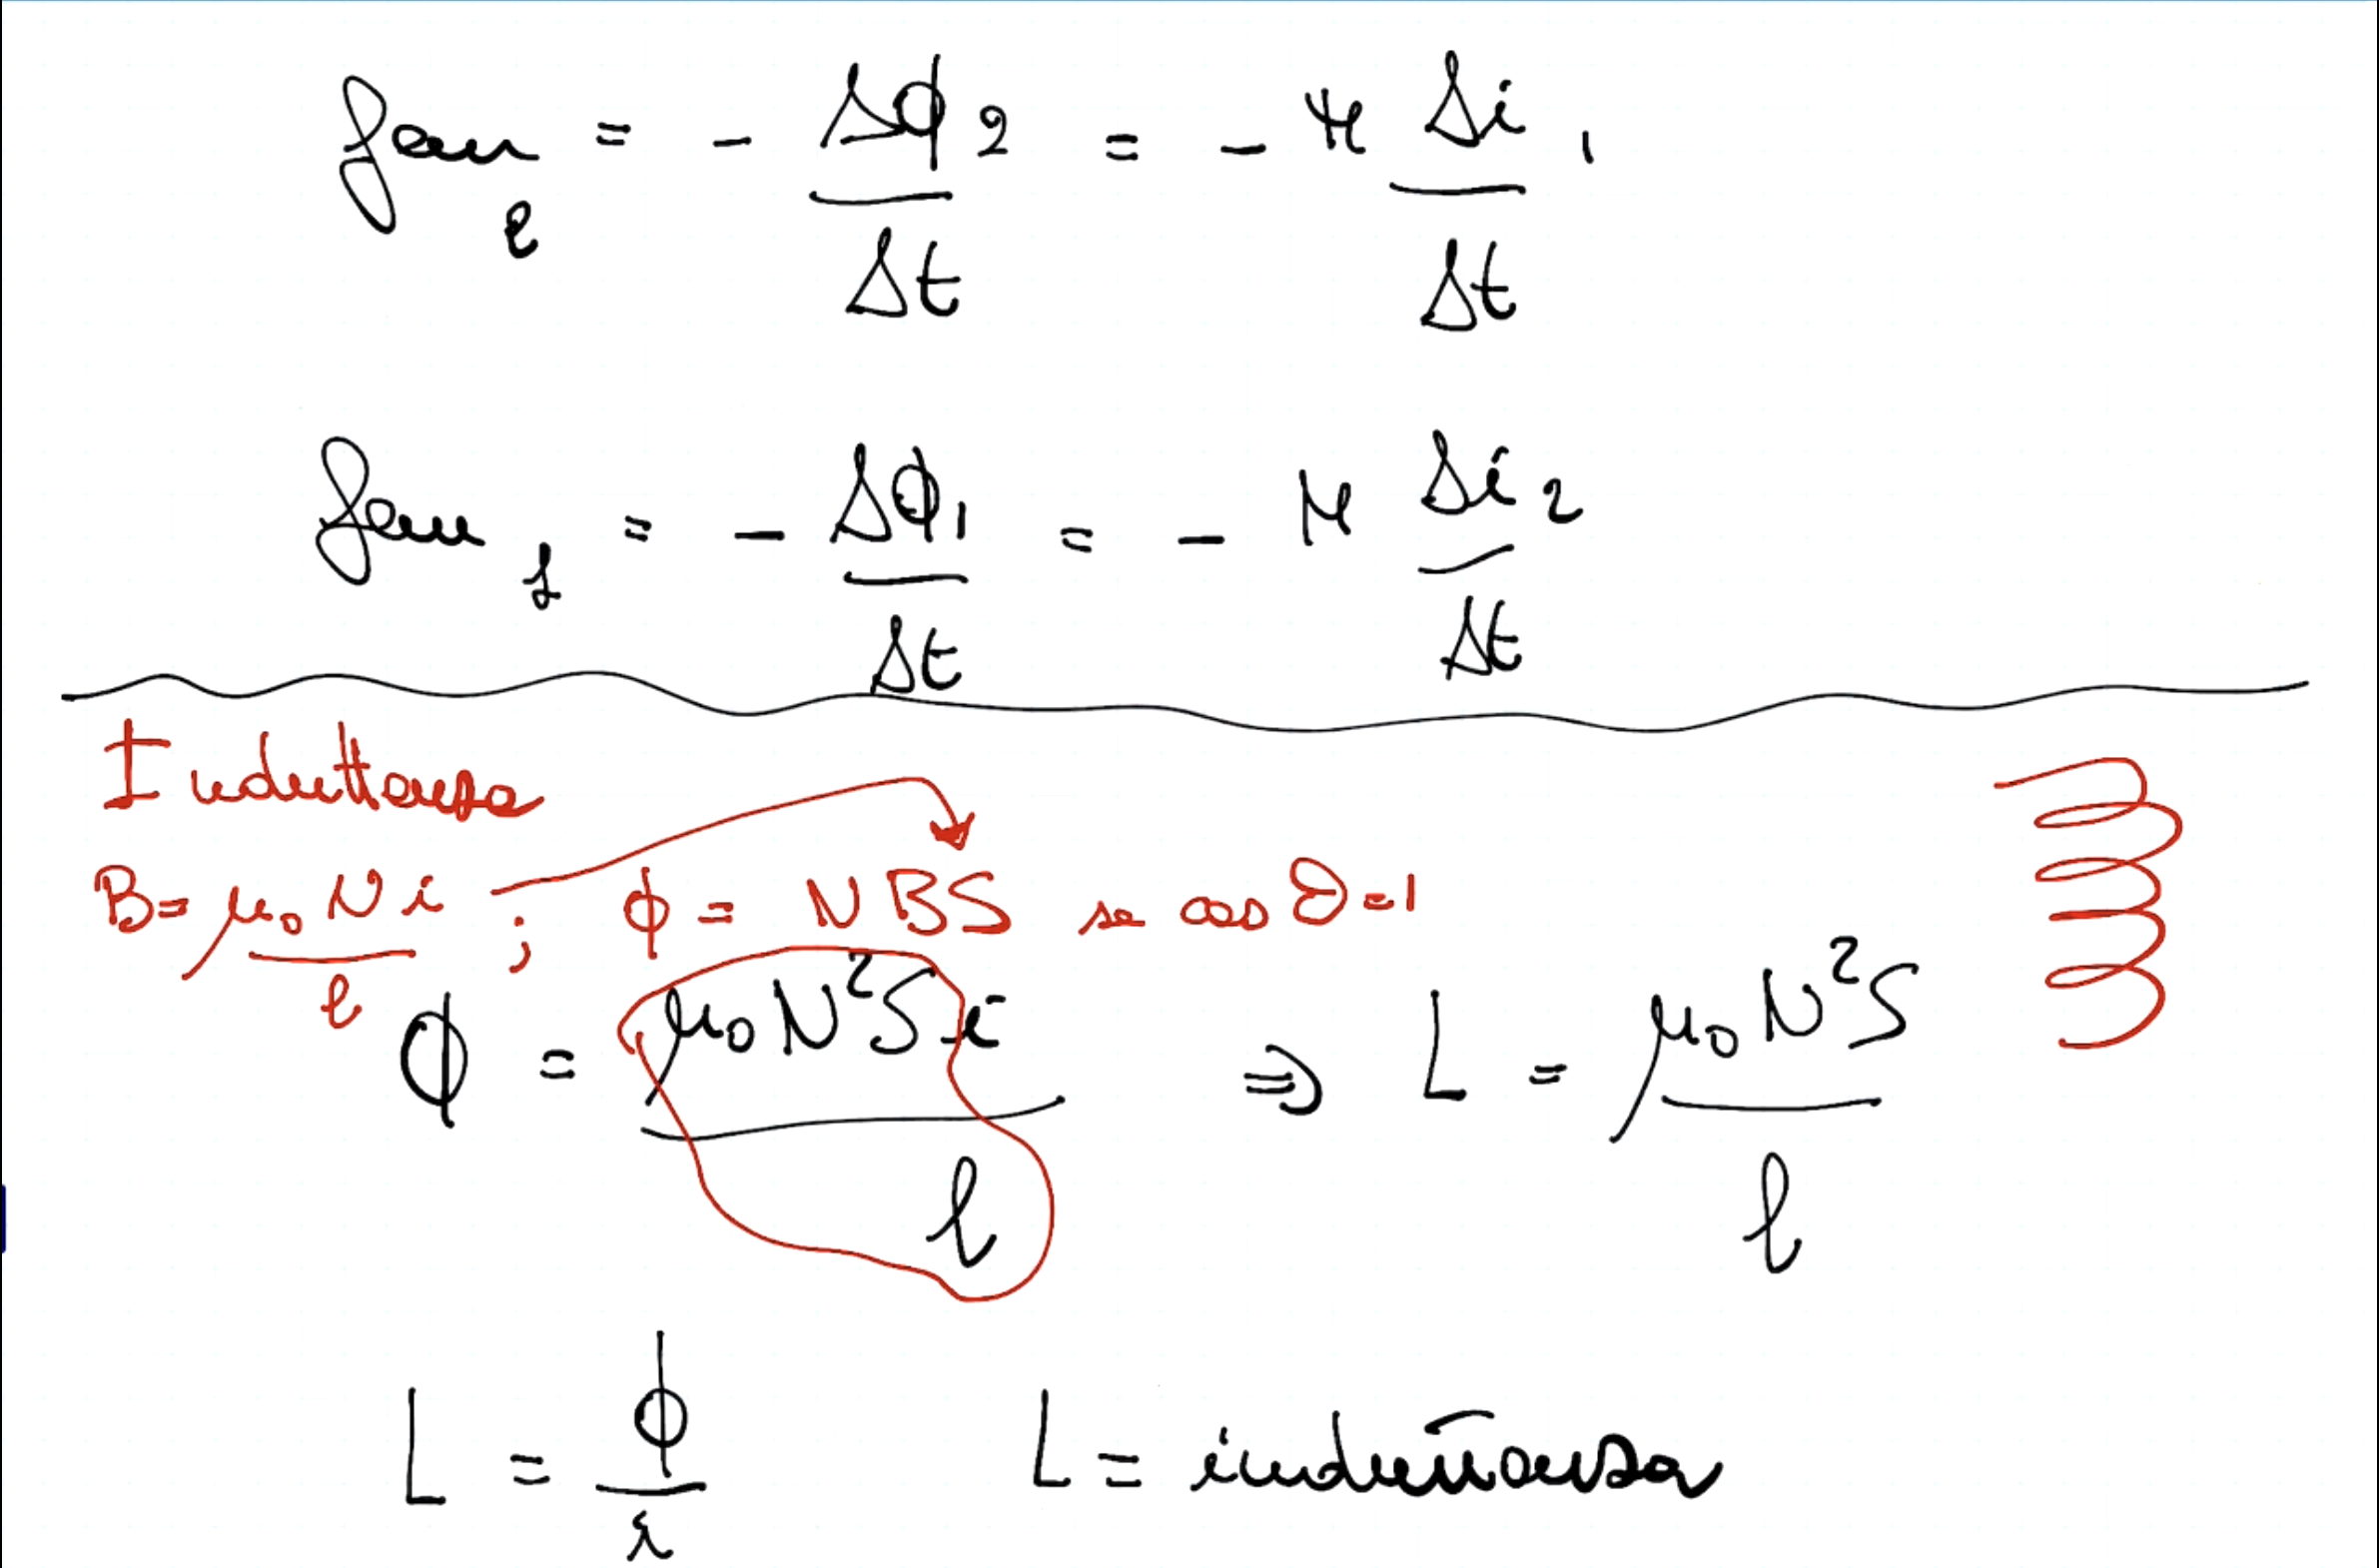 fem₂ = - ΔΦ₂/Δt = - M Δi₁/Δt
fem₁ = - ΔΦ₁/Δt = - M Δi₂/Δt
Induttanza
B = μ₀Ni/l ; Φ = NBS se cos θ = 1
Φ = μ₀N²Si/l ⇒ L = μ₀N²S/l
L = Φ/i L = induttanza